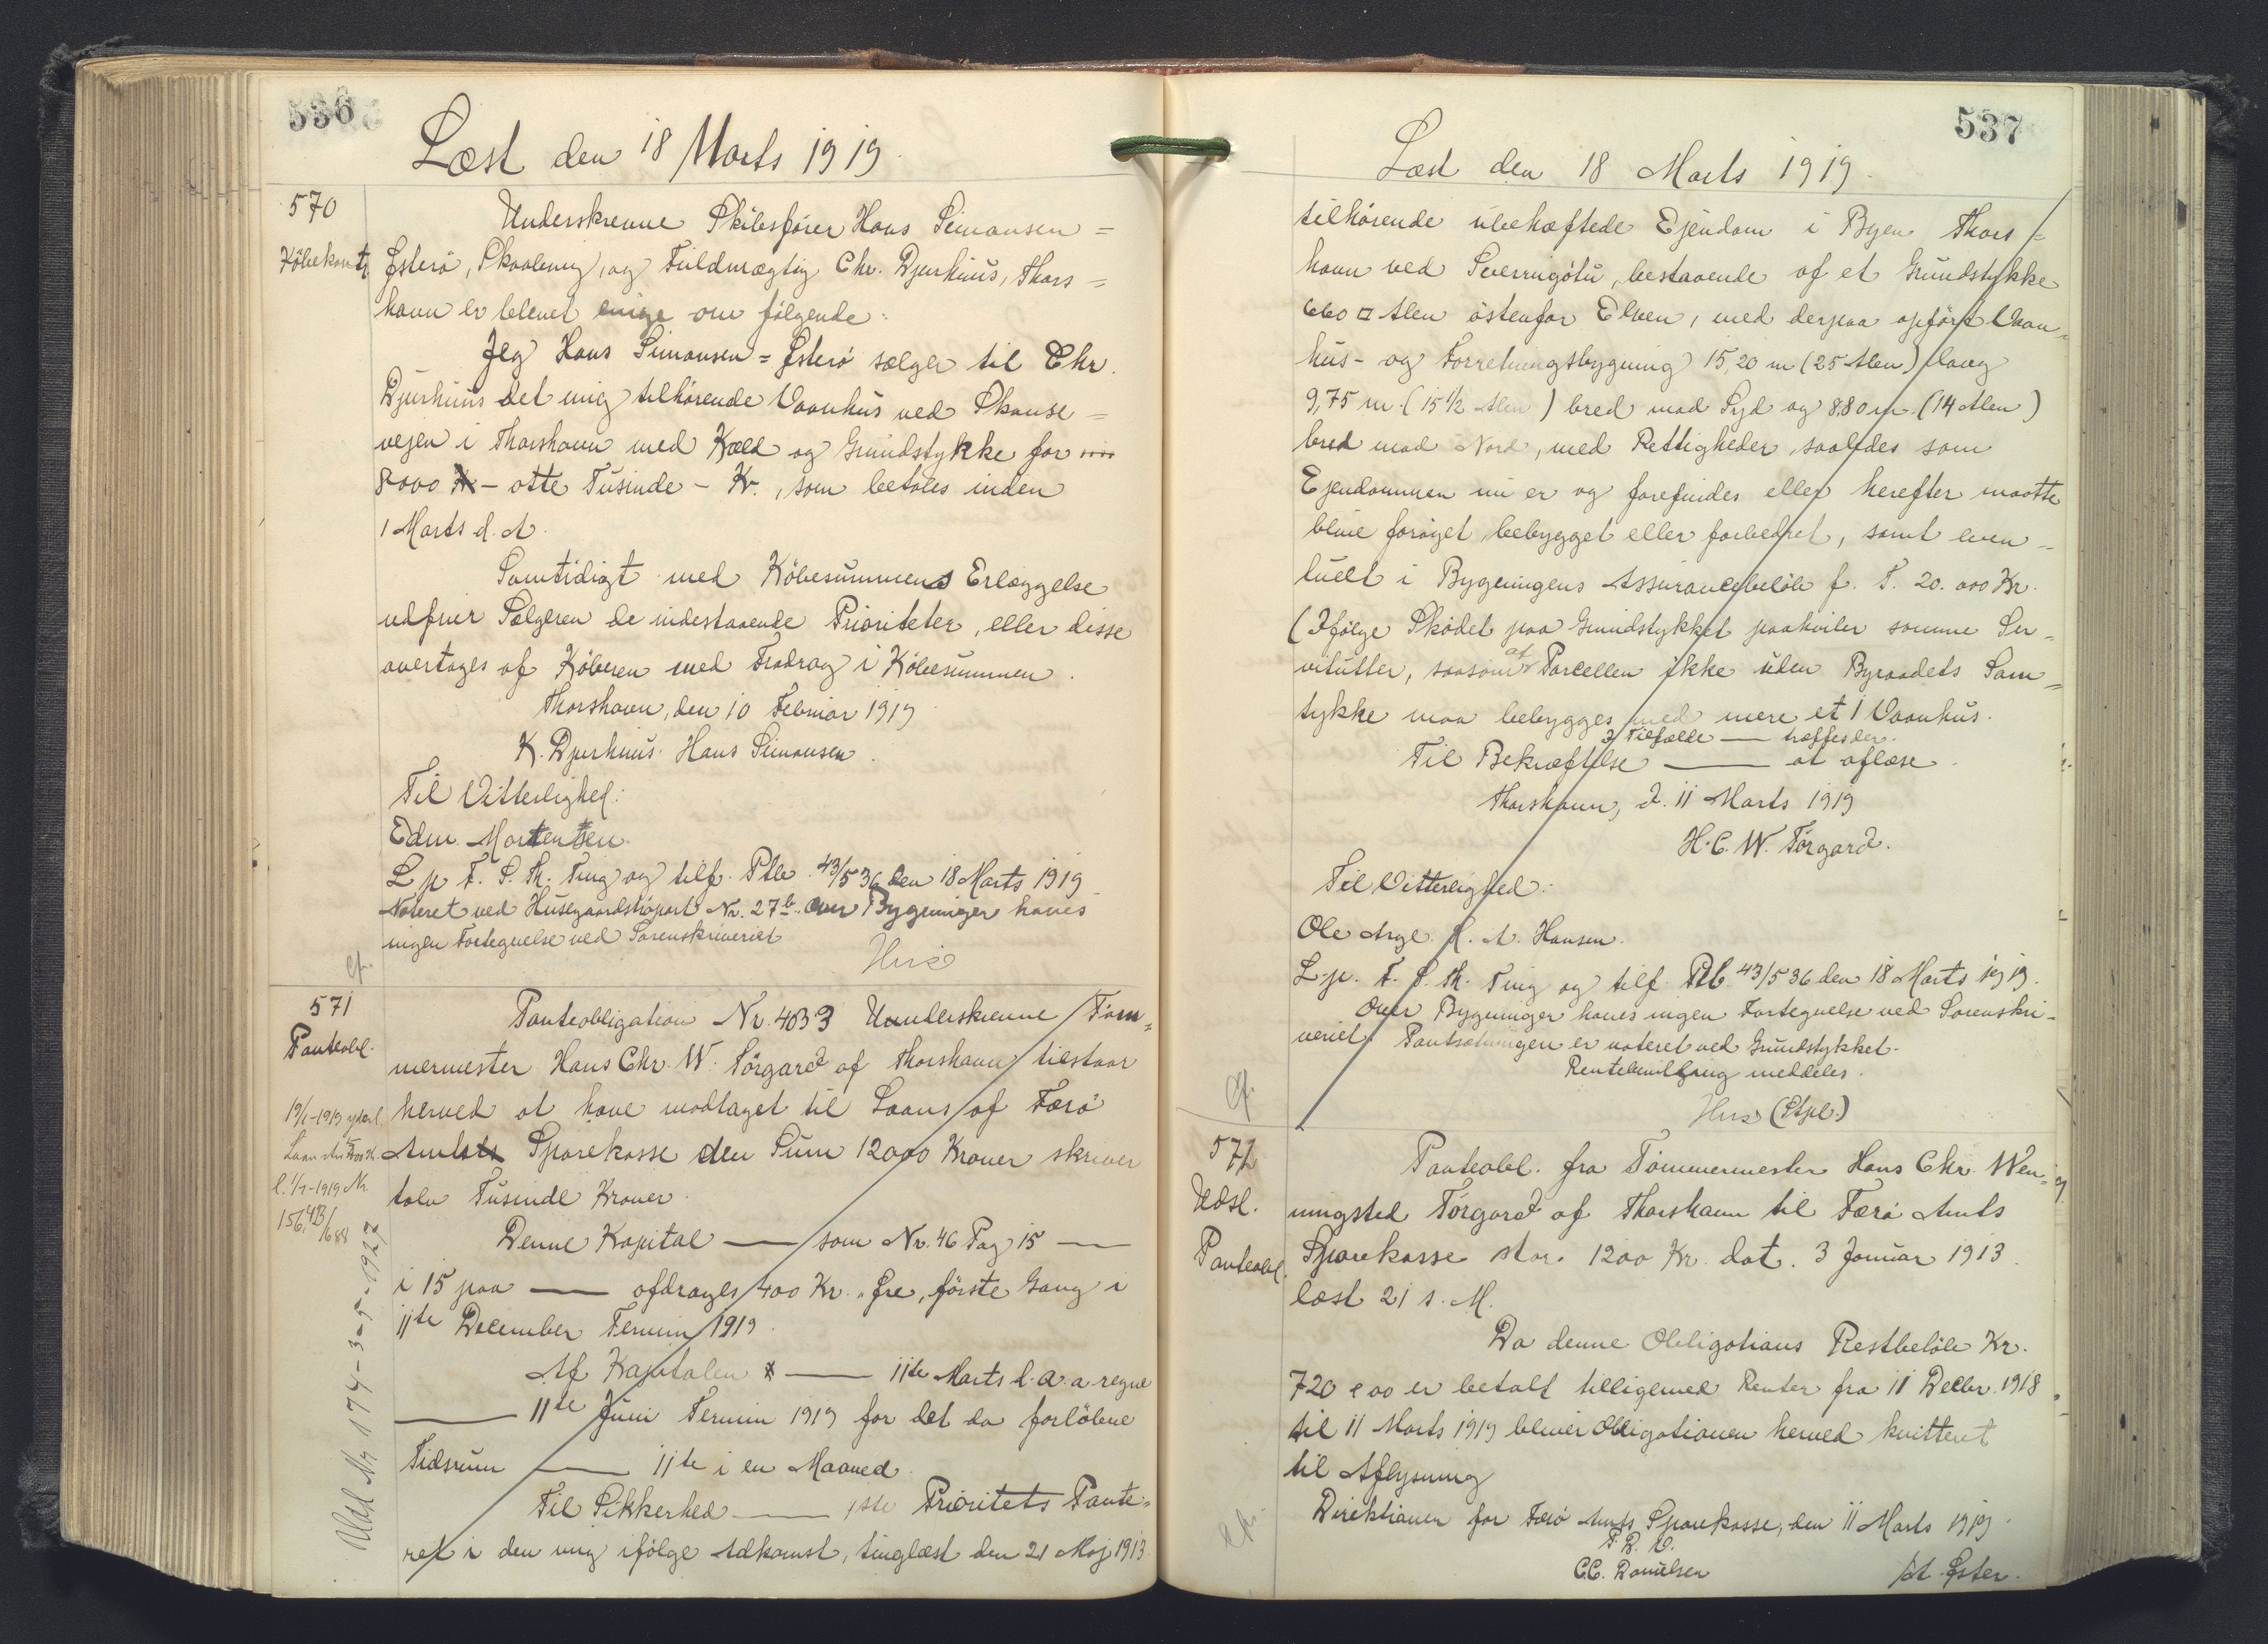 536
Læst den 18 Marts 1919.
570
Köbekontr.
Underskrevne Skibsfører Hans Simonsen =
Østerö, Skaalevig, og Fuldmægtig Chr. Djurhuus, Thors =
havn er blevet enige om følgende:
Jeg Hans Simonsen = Østerö sælger til Chr.
Djurhuus det mig tilhørende Vaanhus ved Skanse =
vejen i Thorshavn med Kæld og Grundstykke for
8000 Kr - otte Tusinde - Kr., som betales inden
1 Marts d. A.
Samtidigt med Köbesummens Erlæggelse
udfrier Sælgeren de indestaaende Prioriteter, eller disse
overtages af Köberen med Fradrag i Köbesummen.
Thorshavn, den 10 Februar 1919
K. Djurhuus. Hans Simonsen.
Til Vitterlighed:
Edm. Mortensen.
L p F. S. Th. Ting og tilf. Ptb. 43/536 den 18 Marts 1919
Noteret ved Husgaardsköpart Nr. 27 b. Over Bygninger haves
ingen Fortegnelse ved Sorenskriveriet
cfr.
571
Panteobl.
19/6-1919 yderl.
l. 1/7-1919 Nr.
156, 43/688
Udsl. Nr 174 - 30-5-1927
Panteobligation Nr. 4033 Uunderskrevne Töm =
mermester Hans Chr. W. Törgard af Thorshavn tilstaar
herved at have modtaget til Laans af Færö
Amts Sparekasse den Sum 12000 Kroner skriver
tolv Tusinde Kroner.
Denne Kapital — som Nr. 46 Pag 15 —
i 15 paa — afdrages 400 Kr. „ Øre, förste Gang i
11te December Termin 1919.
Af Kapitalen — 11te Marts d. A. a regne
— 11te Juni Termin 1919 for det da forlöbne
Tidsrum — 11te i en Maaned.
Til Sikkerhed — 1ste Prioritets Pante =
ret i den mig ifölge Adkomst, tinglæst den 21 Maj 1913
537
Læst den 18 Marts 1919.
tilhörende ubehæftede Ejendom i Byen Thors =
havn ved Sverrisgötu, bestaaende af et Grundstykke
660 □ Alen östenfor Elven, med derpaa opfört Vaan =
hus- og Forretningsbygning 15,20 m (25 Alen) lang
9,75 m. (15 1/2 Alen) bred mod Syd og 8,80 m. (14 Alen)
bred mod Nord, med Rettigheder, saaledes som
Ejendommen nu er og forefindes eller herefter maatte
blive foröget, bebygget eller forbedret, samt even =
tuelt i Bygningens Assurancebelöb f. T. 20.000 Kr.
(Ifölge Sködet paa Grundstykket paahviler samme Ser =
vitutter, saasom at Parcellen ikke uden Byraadets Sam =
tykke maa bebygges med mere et 1 Vaanhus.
I Tilfælde — træffes der.
Til Bekræftelse — at aflæse.
Thorshavn, d. 11 Marts 1919
H. C. W. Törgard.
Til Vitterlighed:
Ole Arge. H. A. Hansen.
L. p. F. S. Th. Ting og tilf. Ptb. 43/536 den 18 Marts 1919.
Over Bygninger haves ingen Fortegnelse ved Sorenskri =
veriet. Pantsætningen er noteret ved Grundstykket.
Rentebevilling meddeles.
(Stpl.)
cfr.
572
Udsl.
Panteobl.
Panteobl. fra Tömmermester Hans Chr. Wen =
ningsted Törgard af Thorshavn til Færö Amts
Sparekasse stor. 1200 Kr. dat. 3 Januar 1913.
læst 21 s. M.
Da denne Obligations Restbelöb Kr.
720 e 00 er betalt tilligemed Renter fra 11 Decbr. 1918
til 11 Marts 1919 bliver Obligationen herved kvitteret
til Aflysning
Direktionen for Færö Amts Sparekasse, den 11 Marts 1919.
P. B. V.
C.C. Danielsen